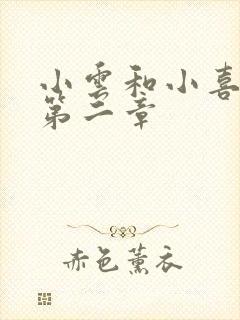 小雲和小喜
第二章
赤色薰衣